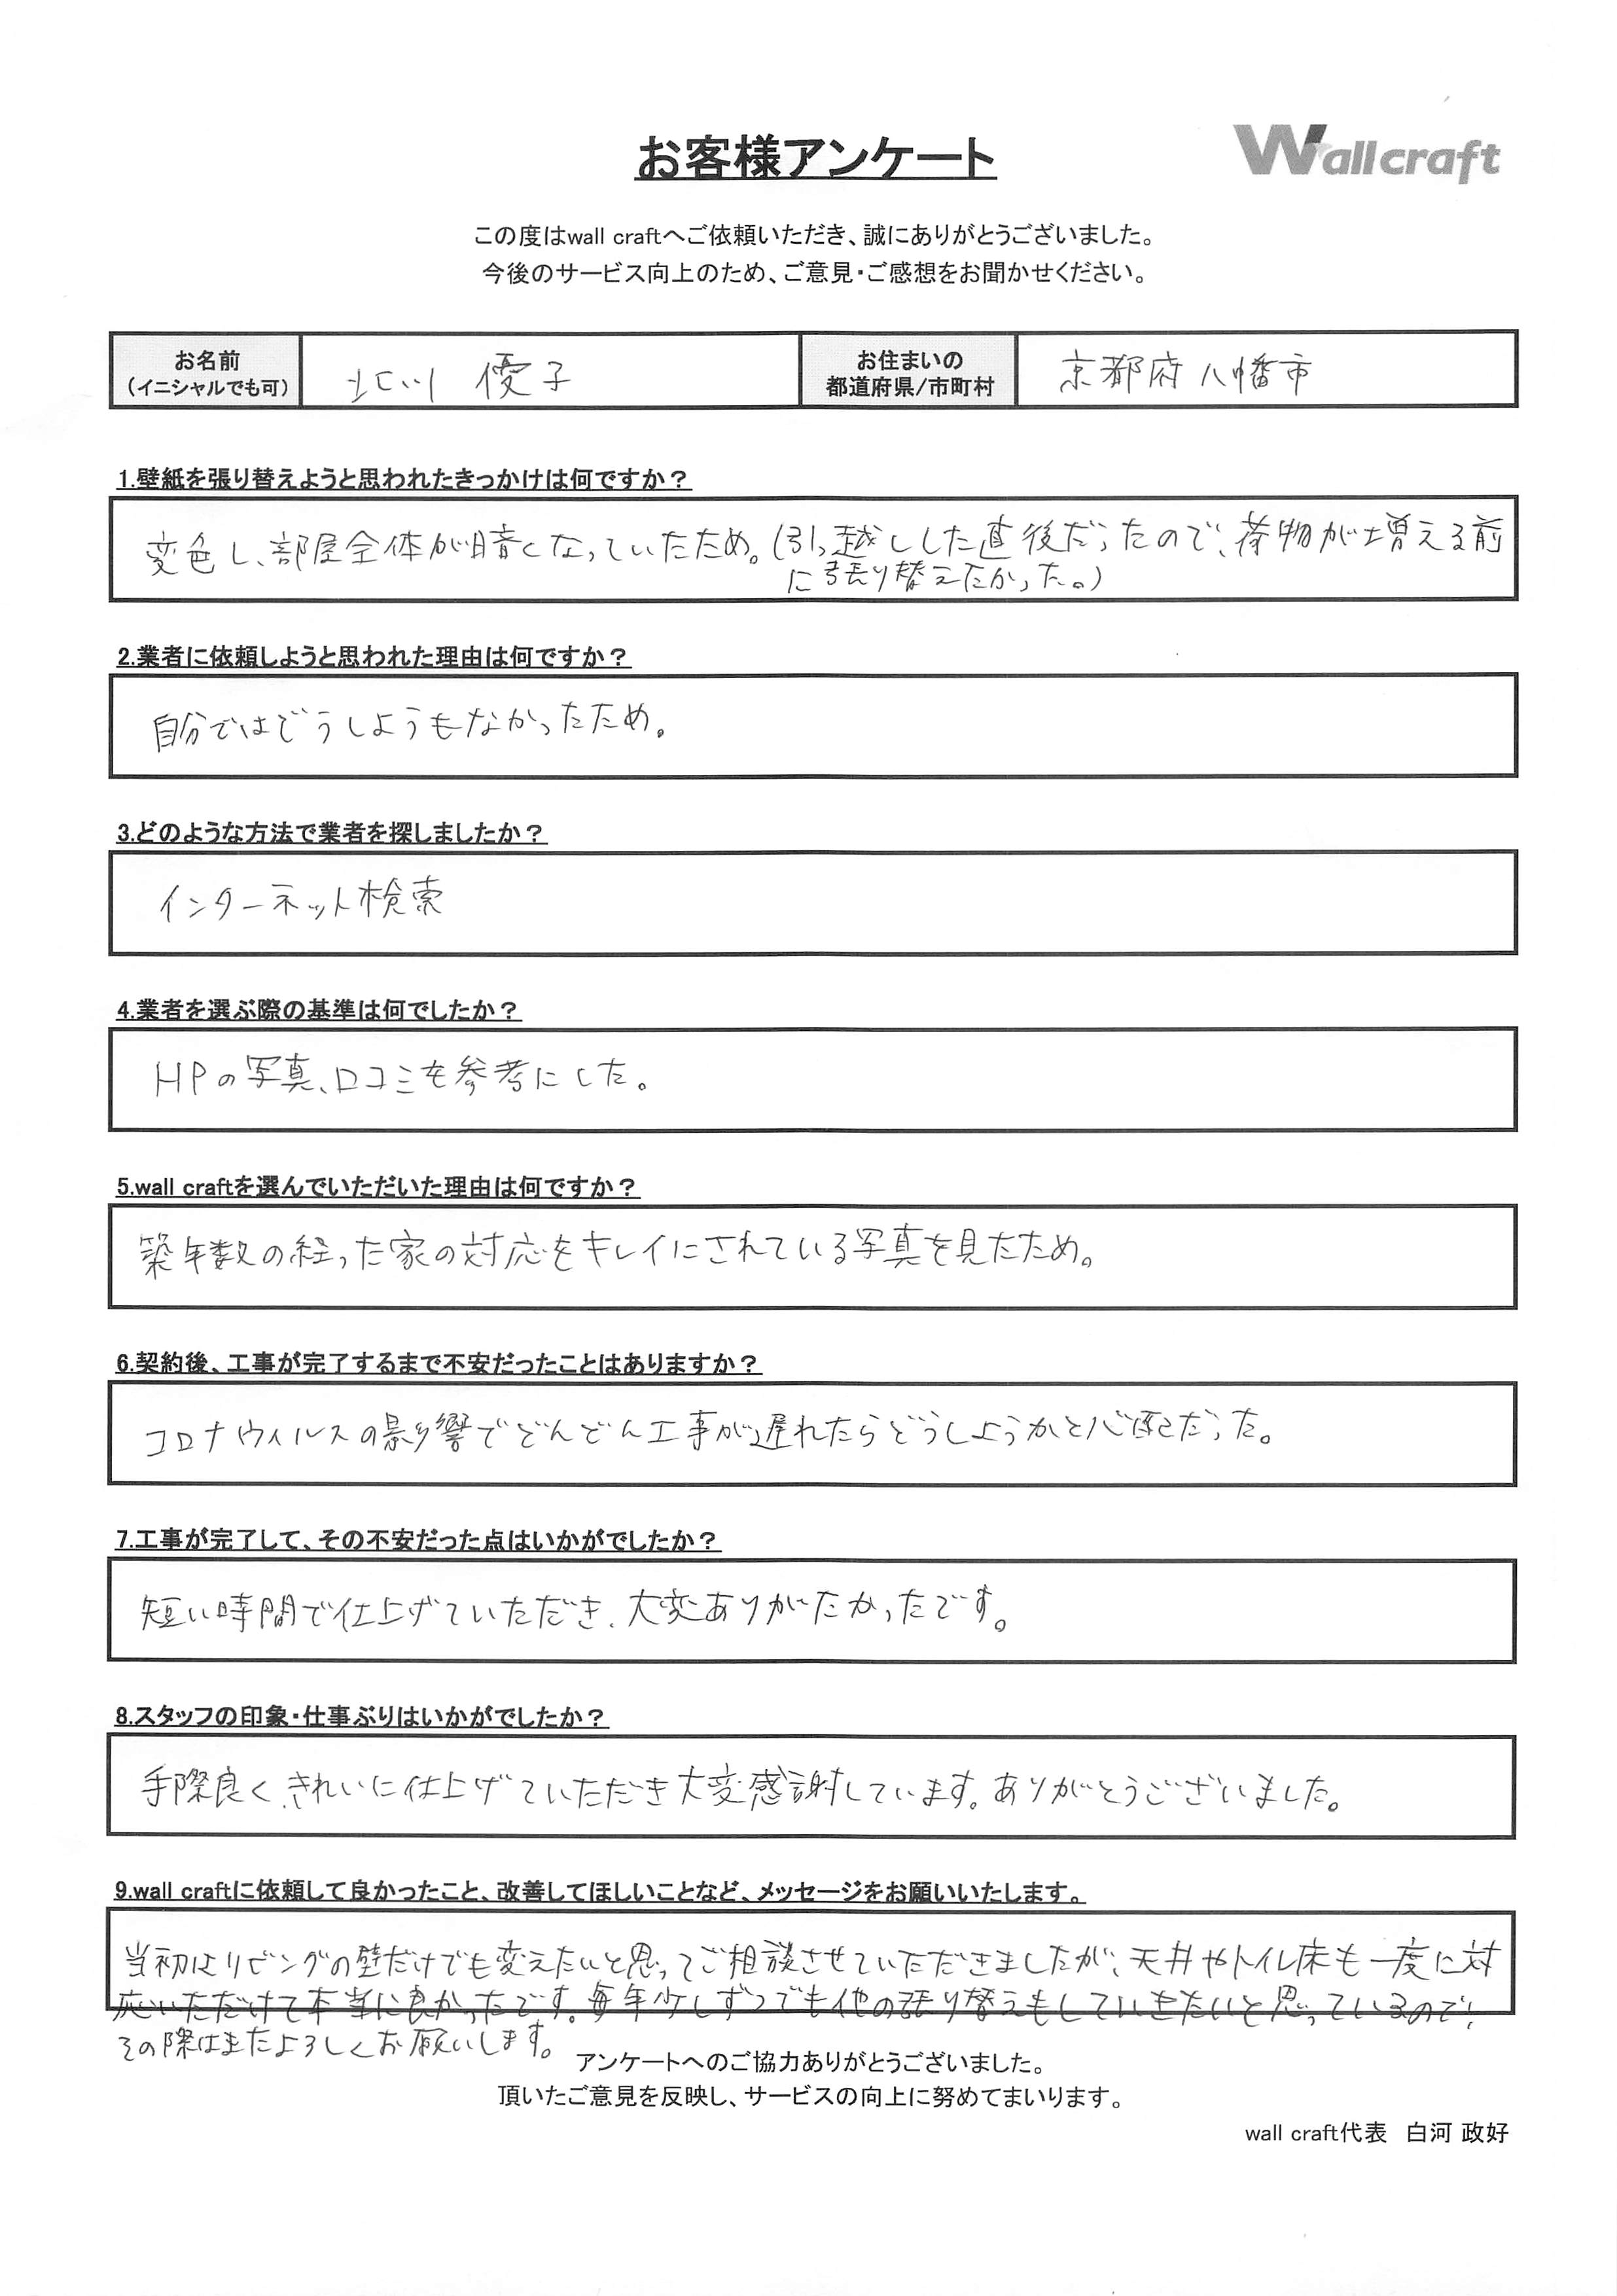 お客様アンケート
Wallcraft
この度はwall craftへご依頼いただき、誠にありがとうございました。
今後のサービス向上のため、ご意見・ご感想をお聞かせください。
お名前
(イニシャルでも可)
北川 優子
お住まいの
都道府県/市町村
京都府八幡市
1.壁紙を張り替えようと思われたきっかけは何ですか？
変色し、部屋全体が暗くなっていたため。(引っ越しした直後だったので、荷物が増える前
に張り替えたかった。)
2.業者に依頼しようと思われた理由は何ですか？
自分ではどうしようもなかったため。
3.どのような方法で業者を探しましたか？
インターネット検索
4.業者を選ぶ際の基準は何でしたか？
HPの写真、口コミを参考にした。
5.wall craftを選んでいただいた理由は何ですか？
築年数の経った家の対応をキレイにされている写真を見たため。
6.契約後、工事が完了するまで不安だったことはありますか？
コロナウィルスの影響でどんどん工事が遅れたらどうしようかと心配だった。
7.工事が完了して、その不安だった点はいかがでしたか？
短い時間で仕上げていただき、大変ありがたかったです。
8.スタッフの印象・仕事ぶりはいかがでしたか？
手際良く、きれいに仕上げていただき大変感謝しています。ありがとうございました。
9.wall craftに依頼して良かったこと、改善してほしいことなど、メッセージをお願いいたします。
当初はリビングの壁だけでも変えたいと思ってご相談させていただきましたが、天井やトイレ床も一度に対
応いただけて本当に良かったです。毎年少しずつでも他の張り替えもしていきたいと思っているので、
その際はまたよろしくお願いします。
アンケートへのご協力ありがとうございました。
頂いたご意見を反映し、サービスの向上に努めてまいります。
wall craft代表 白河 政好